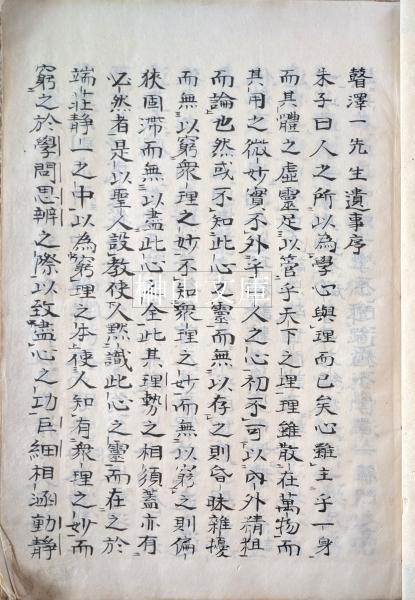 聱澤一先生遺事序
朱子曰人之所以為學心與理而已矣心雖主乎一身
而其體之虛靈足以管乎天下之理理雖散在萬物而
其用之微妙實不外乎一人之心初不可以內外精粗
而論也然或不知此心之靈而無以存之則昏昧雜擾
而無以窮衆理之妙不知衆理之妙而無以窮之則偏
狹固滯而無以盡此心之全此其理勢之相須蓋亦有
必然者是以聖人設教使人默識此心之靈而在之於
端莊靜一之中以為窮理之本使人知有衆理之妙而
窮之於學問思辨之際以致盡心之功巨細相涵動靜
榊山文庫